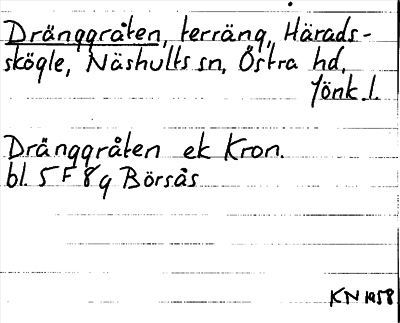 Dränggråten, terräng, Härads-
skögle, Näshults sn, Östra hd,
Jönk.l.
Dränggråten ek Kron.
bl. 5 F 8 g Börsås
KN 1958